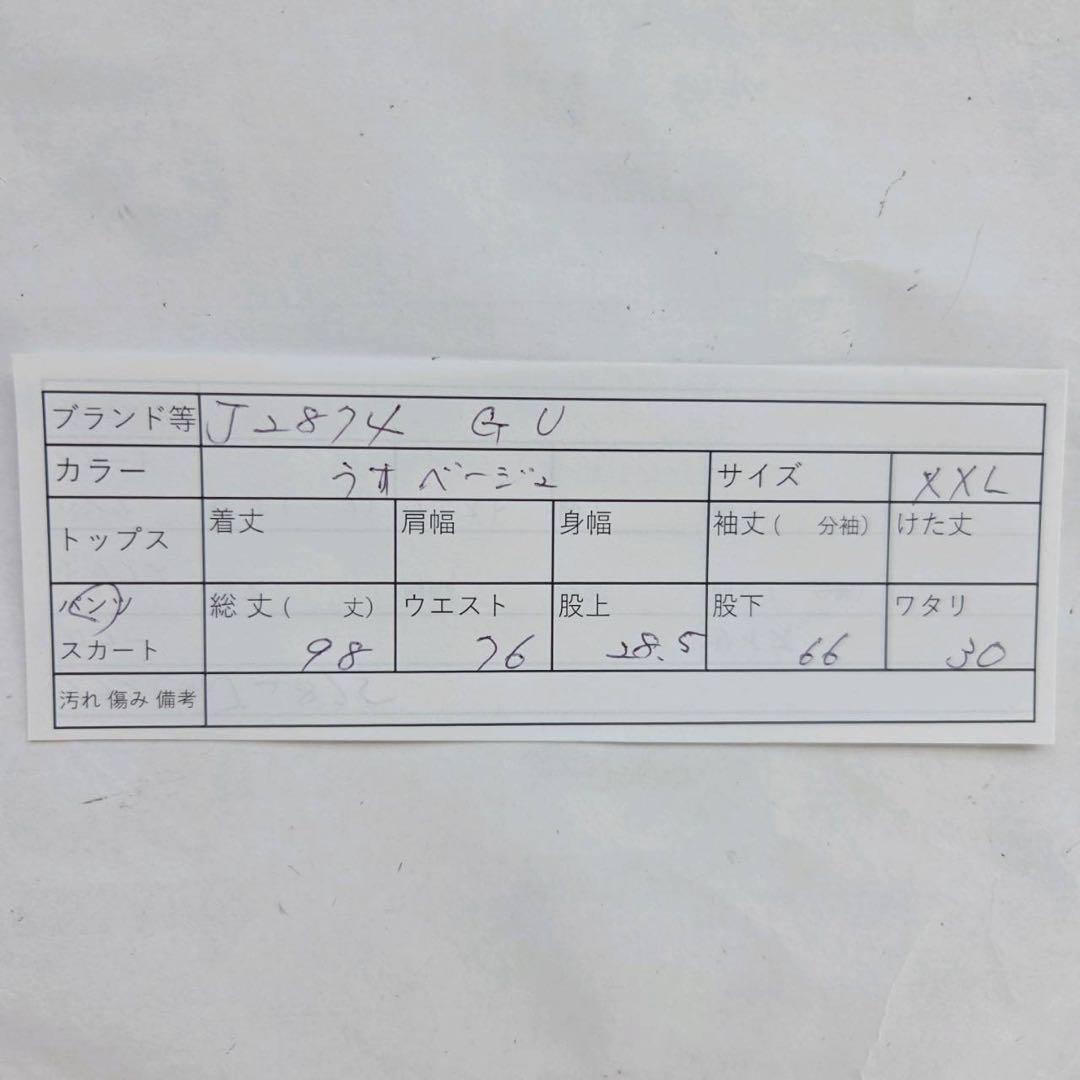 ブランド等 J2874 GU
カラー うすベージュ サイズ XXL
トップス 着丈 肩幅 身幅 袖丈( 分袖) けた丈
パンツ 総丈( 丈) ウエスト 股上 股下 ワタリ
スカート 98 76 28.5 66 30
汚れ 傷み 備考